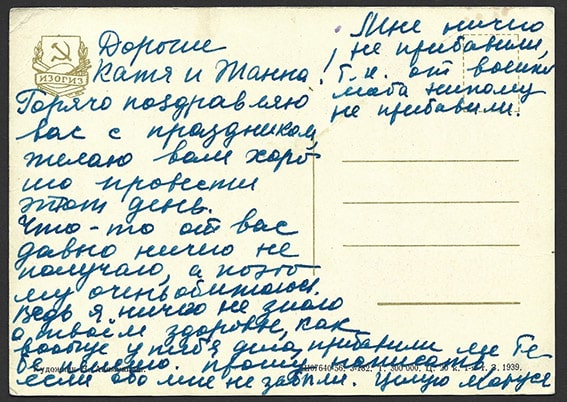 ИЗОГИЗ
Дорогие
Катя и Жанна!
Горячо поздравляю
вас с праздником,
желаю вам хорō-
шо провести
этот день.
Что-то от вас
давно ничего не
получаю, а поэто
му очень обижаюсь.
Ведь я ничего не знаю
о твоём здоровьи, как
вообще у тебя дела, прибавили ли те
бе пенсию. Прошу написать
если обо мне не забыли. Целую Маруся
Мне ничего
не прибавили,
т.к. от военко
мата никому
не прибавили.
Художник
Ш07640-56. З-782. Т. 300 000. Ц. 30 к. 1939.